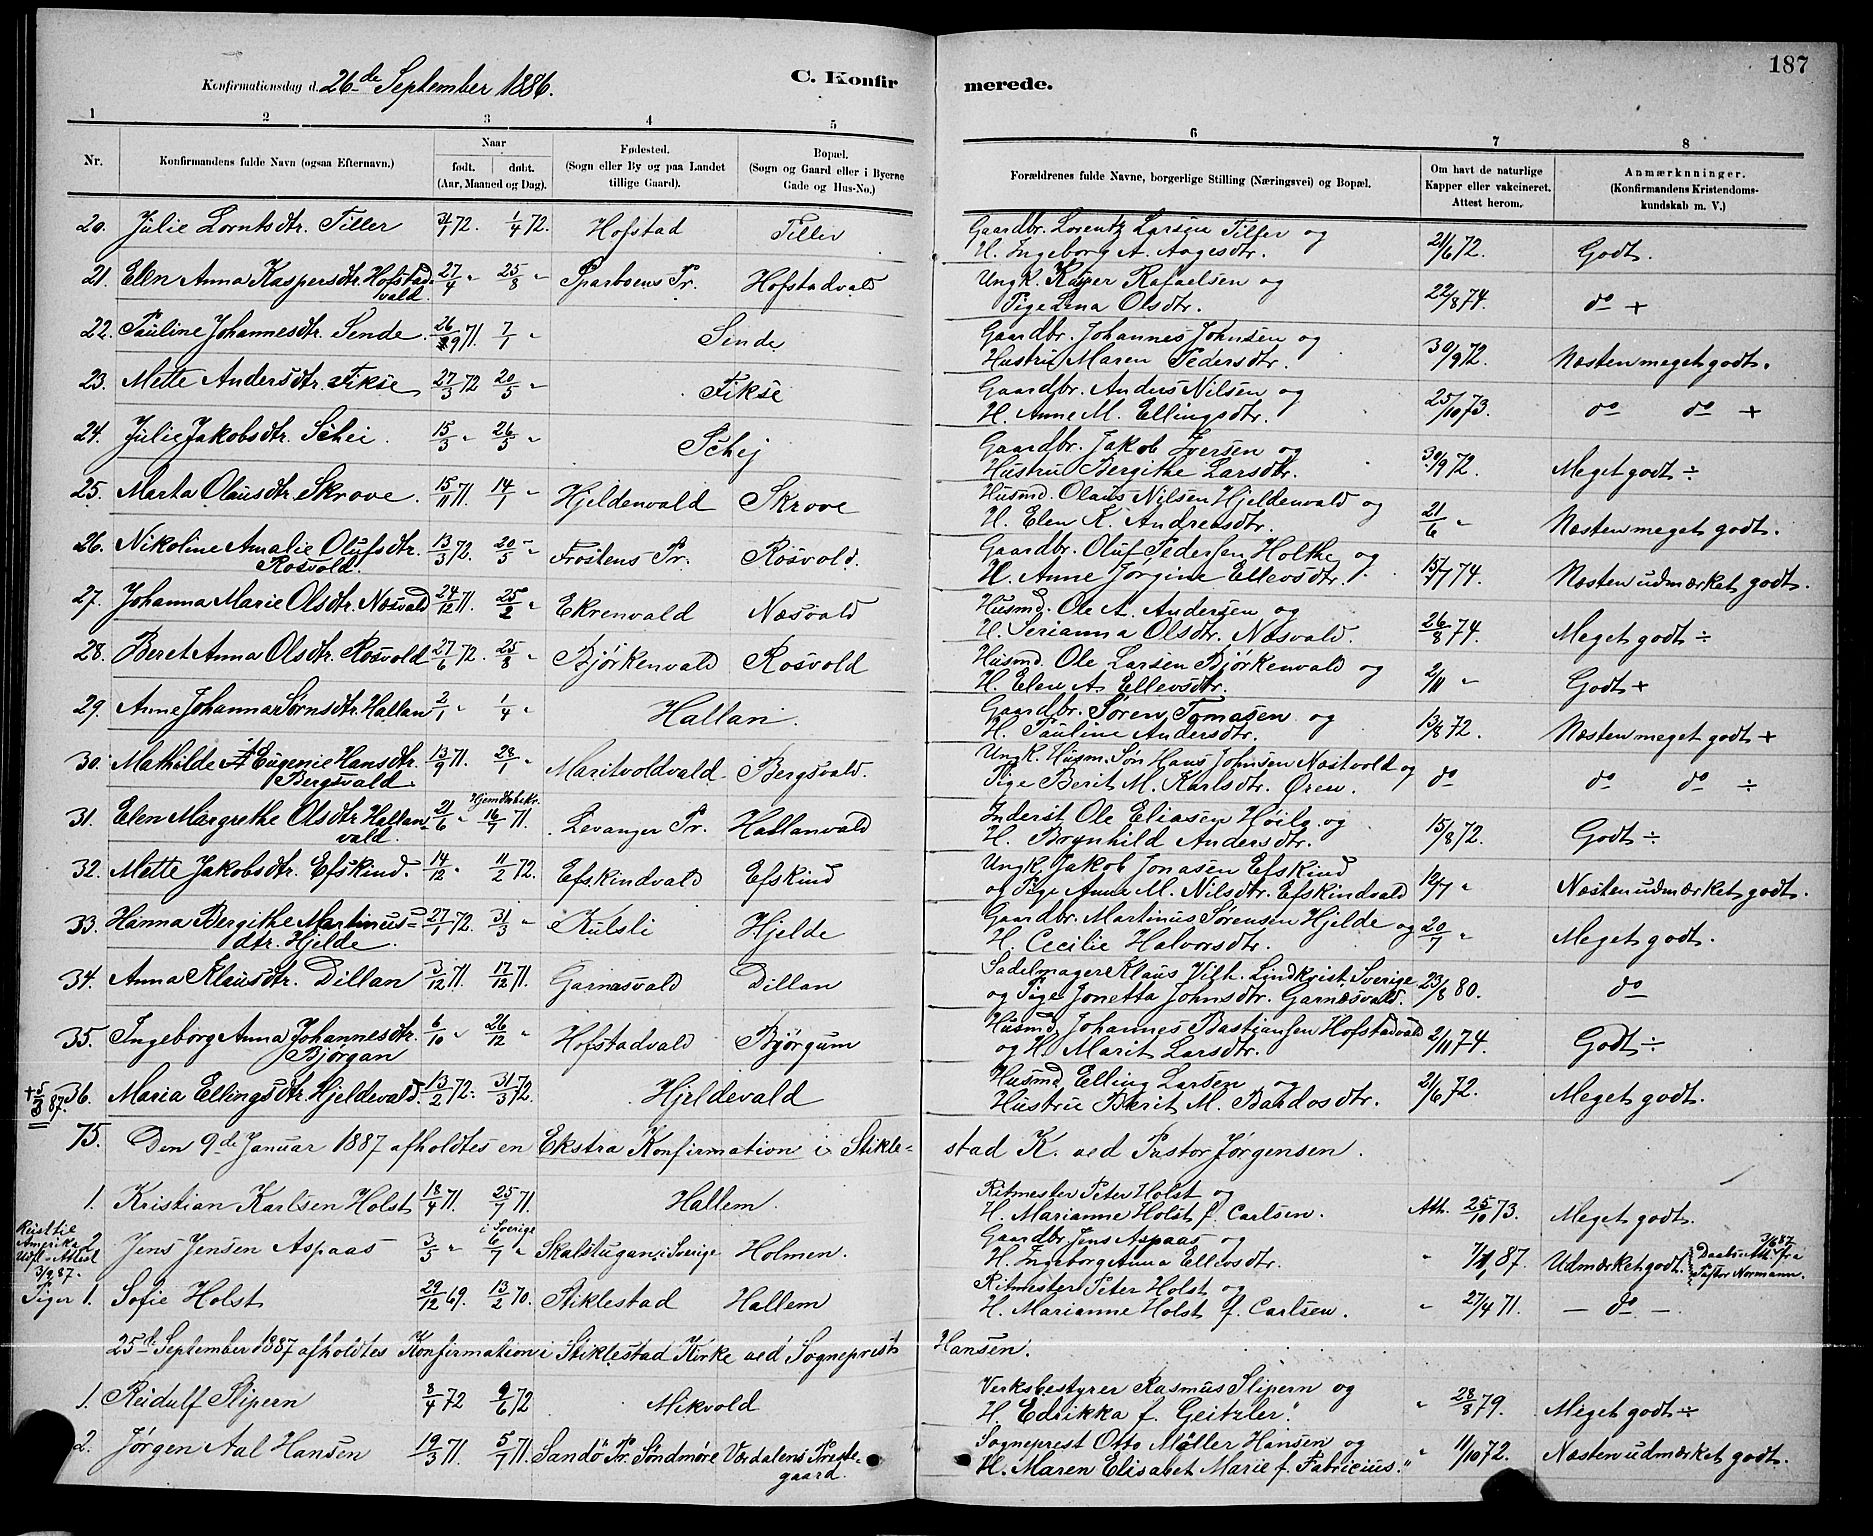 187
Konfirmationsdag d. 26de September 1886.
C. Konfir merede.
1 2 3 4 5 6 7 8
Nr.
Konfirmandens fulde Navn (ogsaa Efternavn.)
Naar
født. døbt.
(Aar, Maaned og Dag).
Fødested.
(Sogn eller By og paa Landet
tillige Gaard).
Bopæl.
(Sogn og Gaard eller i Byerne
Gade og Hus-No.)
Forældrenes fulde Navne, borgerlige Stilling (Næringsvei) og Bopæl.
Om havt de naturlige
Kopper eller vakcineret.
Attest herom.
Anmærkninger.
(Konfirmandens Kristendoms-
kundskab m. V.)
20. Julie Lorntsdtr. Tiller 1/4 72. Hofstad Tiller Gaardbr. Lorentz Larsen Tiller og
H. Ingeborg A. Aagesdtr. 21/6 72. Godt.
21. Elen Anna Kaspersdtr. Hofstad- 27/4 " 25/8 " Sparboens Pr. Hofstadvald Ungk. Kasper Rafaelsen og
vald Pige Lena Olsdtr. 22/8 74. do +
22. Pauline Johannesdtr. Sende. 26/9 71. 7/1 " Sende Gaardbr. Johannes Johnsen og
Hustru Maren Pedersdtr. 30/9 72. Næsten meget godt.
23. Mette Andersdtr. Fikse 27/3 72 20/5 " Fikse Gaardbr. Anders Nilsen og
H. Anne M. Ellingsdtr. 25/10 73. do do +
24. Julie Jakobsdtr. Schei. 15/3 " 26/5 " Schej Gaardbr. Jakob Iversen og
Hustru Bergithe Larsdtr. 30/9 72. Meget godt ÷
25. Marta Olausdtr. Skrove. 15/11 71. 14/1 " Hjeldenvald Skrove Husmd. Olaus Nilsen Hjeldenvald og
H. Elen K. Andreasdtr. 21/6 " Næsten meget godt.
26. Nikoline Amalie Olufsdtr. 13/3 72. 20/5 " Frostens Pr. Rosvold. Gaardbr. Oluf Pedersen Holthe og
Rosvold. H. Anne Jørgine Ellevsdtr. 15/7 74. Næsten udmærket godt.
27. Johanna Marie Olsdtr. Næsvald 24/12 71. 25/2 " Ekrenvald Næsvald Husmd. Ole A. Andersen og
H. Serianna Olsdtr. Næsvald. 26/8 74. Meget godt ÷
28. Beret Anna Olsdtr. Rosvold 27/6 72. 25/8 " Bjørkenvald Rosvold Husmd. Ole Larsen Bjørkenvald og
H. Elen A. Ellevsdtr. 2/11 " Godt +
29. Anne Johanna Sørnsdtr. Hallan 2/1 " 1/4 " Hallan. Gaardbr. Søren Tomasen og
H. Pauline Andersdtr. 13/8 72. Næsten meget godt +
30. Mathilde Eugenie Hansdtr. 13/9 71. 28/1 " Maritvoldvald Bergsvald. Ungk. Husm. Søn Hans Johnsen Næstvold og
Bergsvald. Pige Berit M. Karlsdtr. Ören. do do do ÷
31. Elen Margrethe Olsdtr. Hallan- 21/6 " Hjemdøbt 16/7 71. Levanger Pr. Hallanvald Inderst Ole Eliasen Höilo og
vald. H. Brynhild Andersdtr. 15/8 72. Godt ÷
32. Mette Jakobsdtr. Efskind. 14/12 " 11/2 72. Efskindvald Efskind Ungk. Jakob Jonasen Efskind
og Pige Anne M. Nilsdtr. Efskindvald 12/7 " Næsten udmærket godt.
33. Hanna Bergithe Martinus- 27/1 72. 31/3 " Kulsli Hjelde Gaardbr. Martinus Sørensen Hjelde og
dtr. Hjelde. H. Cecilie Halvorsdtr. 20/7 " Meget godt.
34. Anna Klausdtr. Dillan 3/12 71. 17/12 71. Garnæsvald Dillan Sadelmager Klaus Vilh. Lindkvist, Sverige
og Pige Jonetta Johnsdtr. Garnæsvald. 23/8 80. do
35. Ingeborg Anna Johannesdtr. 6/10 " 26/12 " Hofstadvald Bjørgum Husmd. Johannes Bastiansen Hofstadvald
Bjørgan og H. Marit Larsdtr. 2/11 74. Godt ÷
† 5/3 87. 36. Maria Ellingsdtr. Hjeldevald. 13/2 72. 31/3 72. Hjeldevald Husmd. Elling Larsen og
Hustru Berit M. Bardosdtr. 21/6 72. Meget godt.
75. Den 9de Januar 1887 afholdtes en Ekstra Konfirmation i Stikle- stad K. ved Pastor Jørgensen.
1. Kristian Karlsen Holst 18/4 71. 25/7 71. Hallem. Ritmester Peter Holst og
H. Marianne Holst f. Carlsen. Att. 25/10 73. Meget godt.
Reist til
Amerika
Udfl. Attest
3/9 87.
2. Jens Jensen Aspaas 3/5 " i Sverige 6/7 " Skalstugan i Sverige Holmen. Gaardbr. Jens Aspaas og
H. Ingeborg Anna Ellevsdtr. " 7/1 87. Udmærket godt. Daabs Att. fra
Pastor Normann.
Piger 1. Sofie Holst 29/12 69. 13/2 70. Stiklestad Hallem Ritmester Peter Holst og
H. Marianne Holst f. Carlsen. " 27/4 71. — do —
25de September 1887 afholdtes Konfirmation i Stiklestad Kirke ved Sogneprest Hansen.
1. Reidulf Slipern 8/4 72 9/6 72 Mikvold Verksbestyrer Rasmus Slipern og
H. Edrikka f. Geitzler. " 28/8 79. Meget godt ÷
2. Jørgen Aal Hansen 19/3 71. 5/7 71. Sandö Pr. Söndmöre Værdalens Preste-
gaard. Sogneprest Otto Møller Hansen og
H. Maren Elisabet Marie f. Fabricius. " 11/10 72. Næsten udmærket godt.